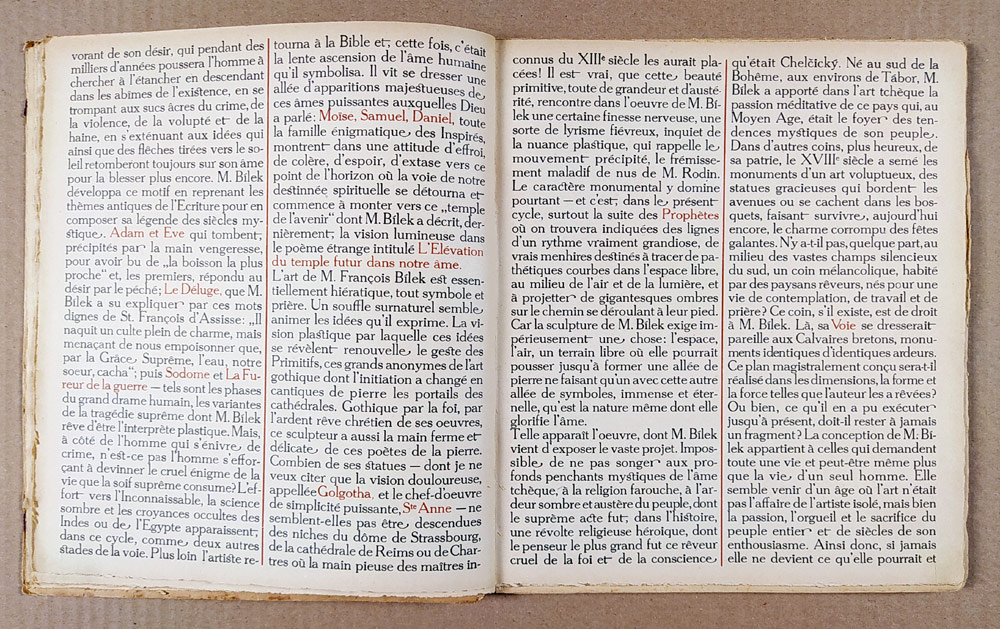 vorant de son désir, qui pendant des
milliers d'années poussera l'homme à
chercher à l'étancher en descendant
dans les abîmes de l'existence, en se
trompant aux sucs âcres du crime, de
la violence, de la volupté et de la
haine, en s'exténuant aux idées qui
ainsi que des flêches tirées vers le so-
leil retomberont toujours sur son âme
pour la blesser plus encore. M. Bílek
développa ce motif en reprenant les
thèmes antiques de l'Ecriture pour en
composer sa légende des siècles my-
stique. Adam et Eve qui tombent,
précipités par la main vengeresse,
pour avoir bu de „la boisson la plus
proche“ et, les premiers, répondu au
désir par le péché; Le Déluge, que M.
Bílek a su expliquer par ces mots
dignes de St. François d'Assisse: „Il
naquit un culte plein de charme, mais
menaçant de nous empoisonner que,
par la Grâce Suprême, l'eau, notre
soeur, cacha“; puis Sodome et La Fu-
reur de la guerre — tels sont les phases
du grand drame humain, les variantes
de la tragédie suprême dont M. Bílek
rêve d'être l'interprète plastique. Mais,
à côté de l'homme qui s'énivre de
crime, n'est-ce pas l'homme s'effor-
çant à devinner le cruel énigme de la
vie que la soif suprême consume? L'ef-
fort vers l'Inconnaissable, la science
sombre et les croyances occultes des
Indes ou de l'Egypte apparaissent,
dans ce cycle, comme deux autres
stades de la voie. Plus loin l'artiste re-
tourna à la Bible et, cette fois, c'était
la lente ascension de l'âme humaine
qu'il symbolisa. Il vit se dresser une
allée d'apparitions majestueuses de
ces âmes puissantes auxquelles Dieu
a parlé: Moïse, Samuel, Daniel, toute
la famille énigmatique des Inspirés,
montrent dans une attitude d'effroi,
de colère, d'espoir, d'extase vers ce
point de l'horizon où la voie de notre
destinnée spirituelle se détourna et
commence à monter vers ce „temple
de l'avenir“ dont M. Bílek a décrit, der-
nièrement, la vision lumineuse dans
le poème étrange intitulé L'Elévation
du temple futur dans notre âme.
L'art de M. François Bílek est essen-
tiellement hiératique, tout symbole et
prière. Un souffle surnaturel semble
animer les idées qu'il exprime. La vi-
sion plastique par laquelle ces idées
se révèlent renouvelle le geste des
Primitifs, ces grands anonymes de l'art
gothique dont l'initiation a changé en
cantiques de pierre les portails des
cathédrales. Gothique par la foi, par
l'ardent rêve chrétien de ses oeuvres,
ce sculpteur a aussi la main ferme et
délicate de ces poètes de la pierre.
Combien de ses statues — dont je ne
veux citer que la vision douloureuse,
appellée Golgotha, et le chef-d'oeuvre
de simplicité puissante, Ste Anne — ne
semblent-elles pas être descendues
des niches du dôme de Strassbourg,
de la cathédrale de Reims ou de Char-
tres où la main pieuse des maîtres in-
connus du XIIIe siècle les aurait pla-
cées! Il est vrai, que cette beauté
primitive, toute de grandeur et d'austé-
rité, rencontre dans l'oeuvre de M. Bí-
lek une certaine finesse nerveuse, une
sorte de lyrisme fiévreux, inquiet de
la nuance plastique, qui rappelle le
mouvement précipité, le frémisse-
ment maladif de nus de M. Rodin.
Le caractère monumental y domine
pourtant — et c'est, dans le présent
cycle, surtout la suite des Prophètes
où on trouvera indiquées des lignes
d'un rythme vraiment grandiose, de
vrais menhires destinés à tracer de pa-
thétiques courbes dans l'espace libre,
au milieu de l'air et de la lumière, et
à projetter de gigantesques ombres
sur le chemin se déroulant à leur pied.
Car la sculpture de M. Bílek exige im-
périeusement une chose: l'espace,
l'air, un terrain libre où elle pourrait
pousser jusqu'à former une allée de
pierre ne faisant qu'un avec cette autre
allée de symboles, immense et éter-
nelle, qu'est la nature même dont elle
glorifie l'âme.
Telle apparaît l'oeuvre, dont M. Bílek
vient d'exposer le vaste projet. Impos-
sible de ne pas songer aux pro-
fonds penchants mystiques de l'âme
tchèque, à la religion farouche, à l'ar-
deur sombre et austère du peuple, dont
le suprème acte fut, dans l'histoire,
une révolte religieuse héroique, dont
le penseur le plus grand fut ce rêveur
cruel de la foi et de la conscience
qu'était Chelčický. Né au sud de la
Bohême, aux environs de Tábor, M.
Bílek a apporté dans l'art tchèque la
passion méditative de ce pays qui, au
Moyen Age, était le foyer des ten-
dences mystiques de son peuple.
Dans d'autres coins, plus heureux, de
sa patrie, le XVIIIe siècle a semé les
monuments d'un art voluptueux, des
statues gracieuses qui bordent les
avenues ou se cachent dans les bos-
quets, faisant survivre, aujourd'hui
encore, le charme corrompu des fêtes
galantes. N'y a-t-il pas, quelque part, au
milieu des vastes champs silencieux
du sud, un coin mélancolique, habité
par des paysans rêveurs, nés pour une
vie de contemplation, de travail et de
prière? Ce coin, s'il existe, est de droit
à M. Bílek. Là, sa Voie se dresserait
pareille aux Calvaires bretons, monu-
ments identiques d'identiques ardeurs.
Ce plan magistralement conçu sera-t-il
réalisé dans les dimensions, la forme et
la force telles que l'auteur les a rêvées?
Ou bien, ce qu'il en a pu exécuter
jusqu'à présent, doit-il rester à jamais
un fragment? La conception de M. Bí-
lek appartient à celles qui demandent
toute une vie et peut-être même plus
que la vie d'un seul homme. Elle
semble venir d'un âge où l'art n'était
pas l'affaire de l'artiste isolé, mais bien
la passion, l'orgueil et le sacrifice du
peuple entier et de siècles de son
enthousiasme. Ainsi donc, si jamais
elle ne devient ce qu'elle pourrait et